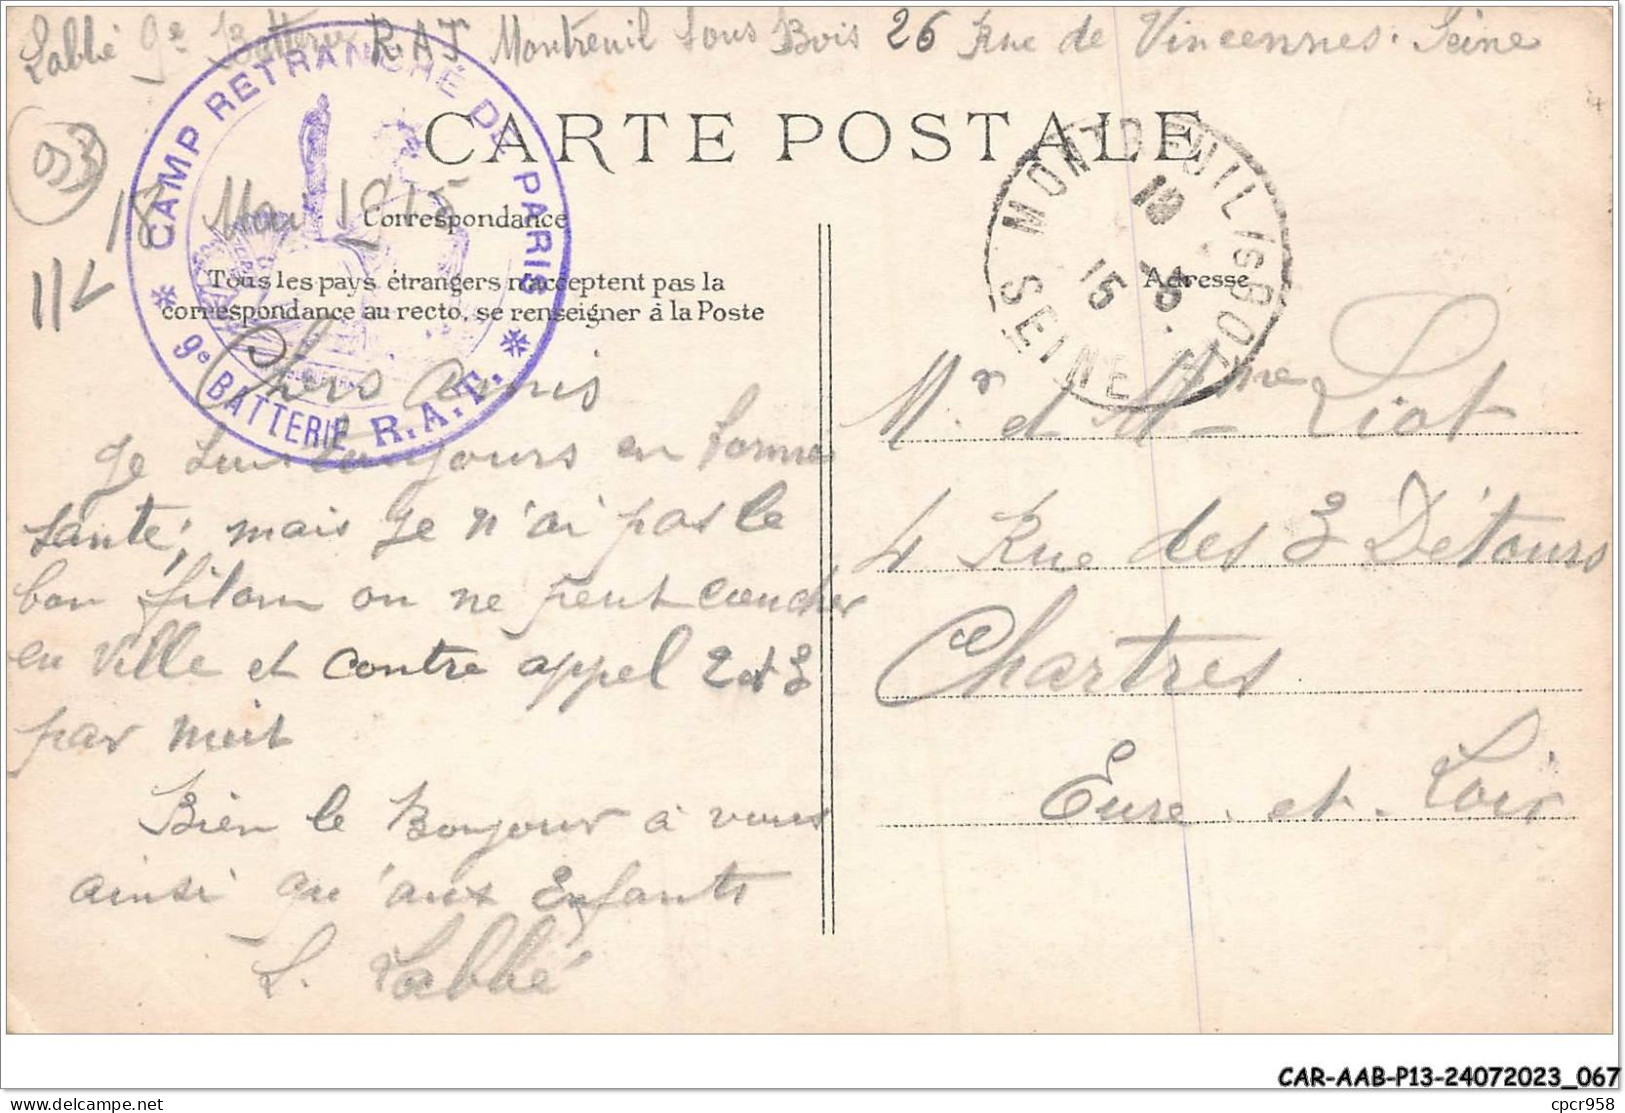 Labbé 9e Batterie R.A.T Montreuil sous Bois 26 Rue de Vincennes. Seine
CARTE POSTALE
CAMP RETRANCHÉ DE PARIS
* 9e BATTERIE R.A.T. *
MONTREUIL S/S BOIS
SEINE
18
15 5
93
18 Mai 1915
112
Correspondance
Tous les pays étrangers n'acceptent pas la
correspondance au recto, se renseigner à la Poste
Adresse
Chers amis
Je suis toujours en bonne
santé, mais je n'ai pas le
bon filon on ne peut coucher
en ville et contre appel 2 et 3
par nuit
Bien le Bonjour à vous
ainsi qu'aux Enfants
L. Labbé
Mr et Mme Liot
4 Rue des 3 Détours
Chartres
Eure et Loir
CAR-AAB-P13-24072023_067
delcampe.net
cpcr958